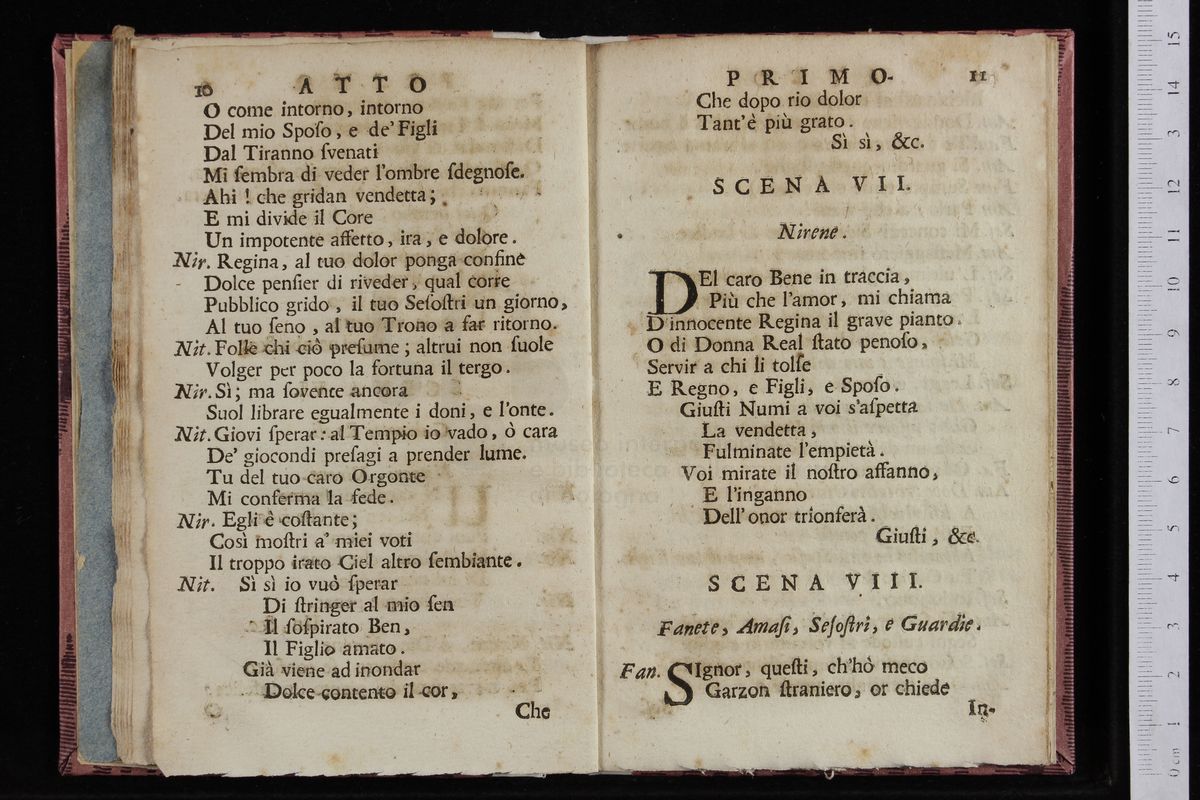 10 ATTO
O come intorno, intorno
Del mio Spoſo, e de' Figli
Dal Tiranno ſvenati
Mi ſembra di veder l'ombre ſdegnoſe.
Ahi ! che gridan vendetta;
E mi divide il Core
Un impotente affetto, ira, e dolore.
Nir. Regina, al tuo dolor ponga confine
Dolce penſier di riveder, qual corre
Pubblico grido, il tuo Seſoſtri un giorno,
Al tuo ſeno, al tuo Trono a far ritorno.
Nit. Folle chi ciò preſume; altrui non ſuole
Volger per poco la fortuna il tergo.
Nir. Sì; ma ſovente ancora
Suol librare egualmente i doni, e l'onte.
Nit. Giovi ſperar: al Tempio io vado, ò cara
De' giocondi preſagi a prender lume.
Tu del tuo caro Orgonte
Mi conferma la fede.
Nir. Egli è coſtante;
Così moſtri a' miei voti
Il troppo irato Ciel altro ſembiante.
Nit. Sì sì io vuò ſperar
Di ſtringer al mio ſen
Il ſoſpirato Ben,
Il Figlio amato.
Già viene ad inondar
Dolce contento il cor,
Che
PRIMO. 11
Che dopo rio dolor
Tant'è più grato.
Sì sì, &c.
SCENA VII.
Nirene.
DEl caro Bene in traccia,
Più che l'amor, mi chiama
D'innocente Regina il grave pianto.
O di Donna Real ſtato penoſo,
Servir a chi li tolſe
E Regno, e Figli, e Spoſo.
Giuſti Numi a voi s'aſpetta
La vendetta,
Fulminate l'empietà.
Voi mirate il noſtro affanno,
E l'inganno
Dell'onor trionferà.
Giuſti, &c.
SCENA VIII.
Fanete, Amaſi, Seſoſtri, e Guardie.
Fan. SIgnor, queſti, ch'hò meco
Garzon ſtraniero, or chiede
In-
0 cm 1 2 3 4 5 6 7 8 9 10 11 12 13 14 15